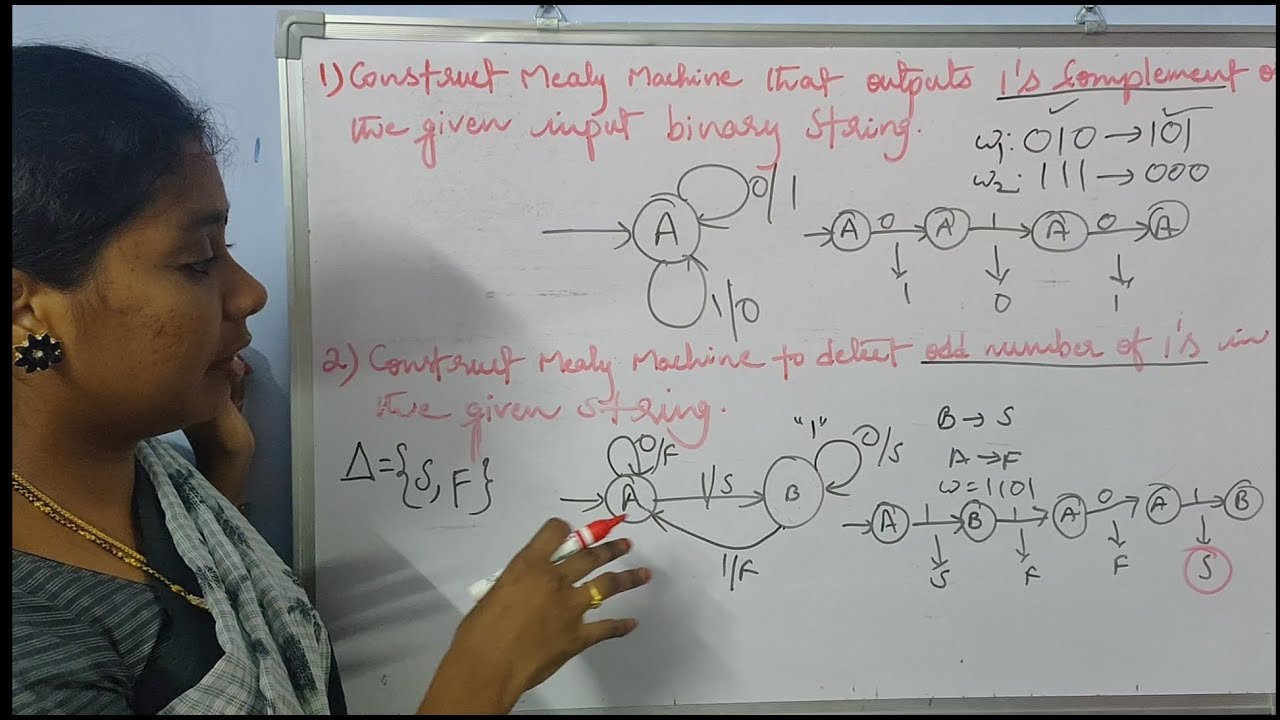 1) Construct Mealy Machine that outputs 1's Complement o
the given input binary string.
w1: 010 → 101
w2: 111 → 000
0/1
A
1/0
A 0 A 1 A 0 A
1 0 1
2) Construct Mealy Machine to detect odd number of 1's in
the given string.
Δ = {S, F}
0/F
A
1/S
"1"
B
0/S
1/F
B → S
A → F
w = 1101
A 1 B 1 A 0 A 1 B
S F F S